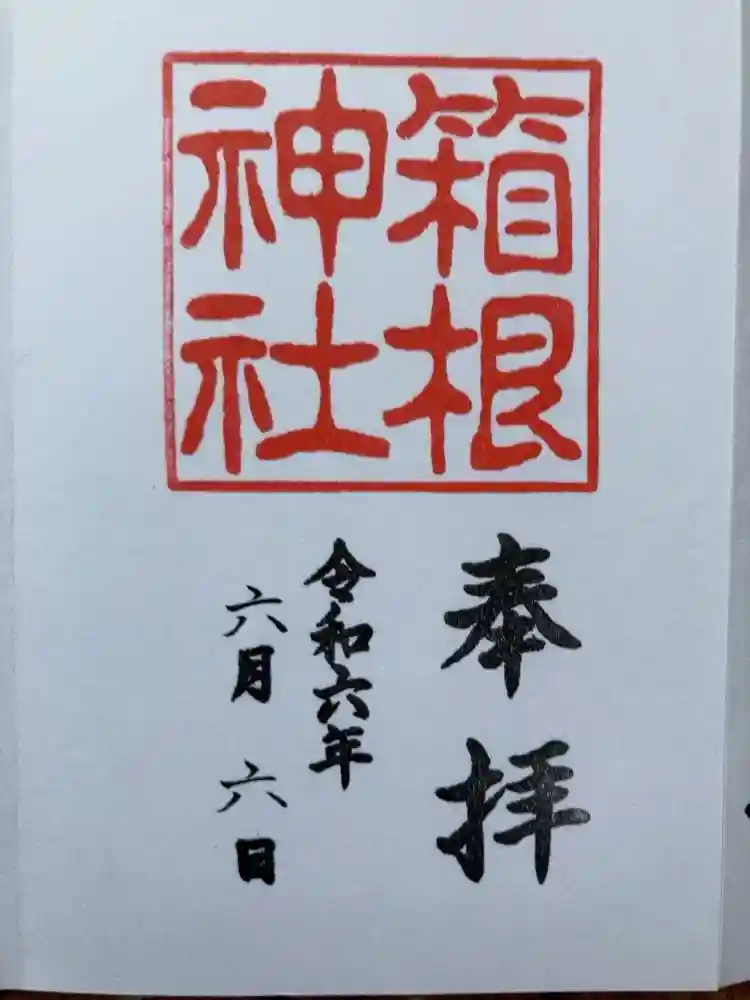 箱根
神社
奉拝
令和六年
六月六日